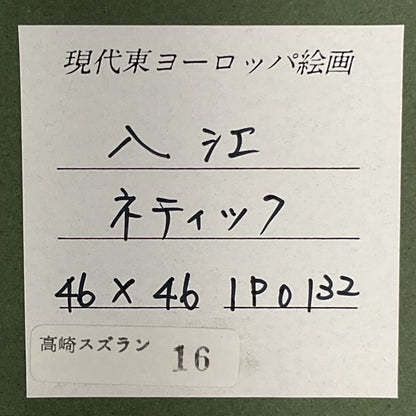 現代東ヨーロッパ絵画
入江
ネティック
46×46 1P0132
高崎スズラン 16